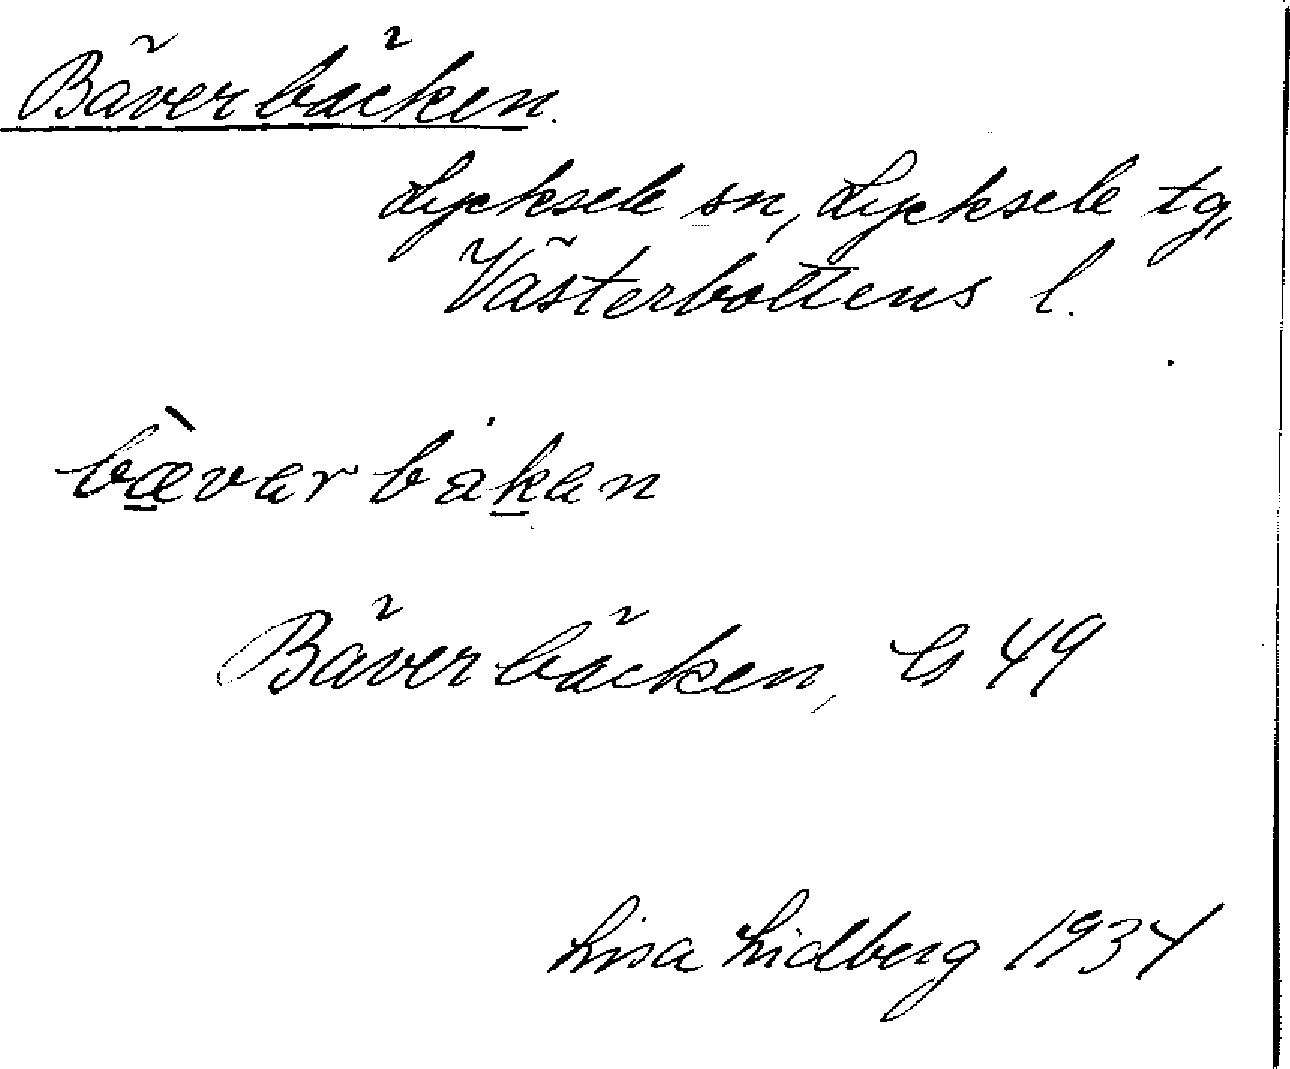 Bäverbäcken.
Lycksele sn, Lycksele tg,
Västerbottens l.
bæ̀var bakan
Bäverbäcken, G 49
Lisa Lidberg 1934